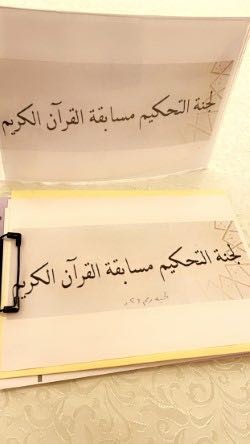 لجنة التحكيم مسابقة القرآن الكريم
لجنة التحكيم مسابقة القرآن الكريم